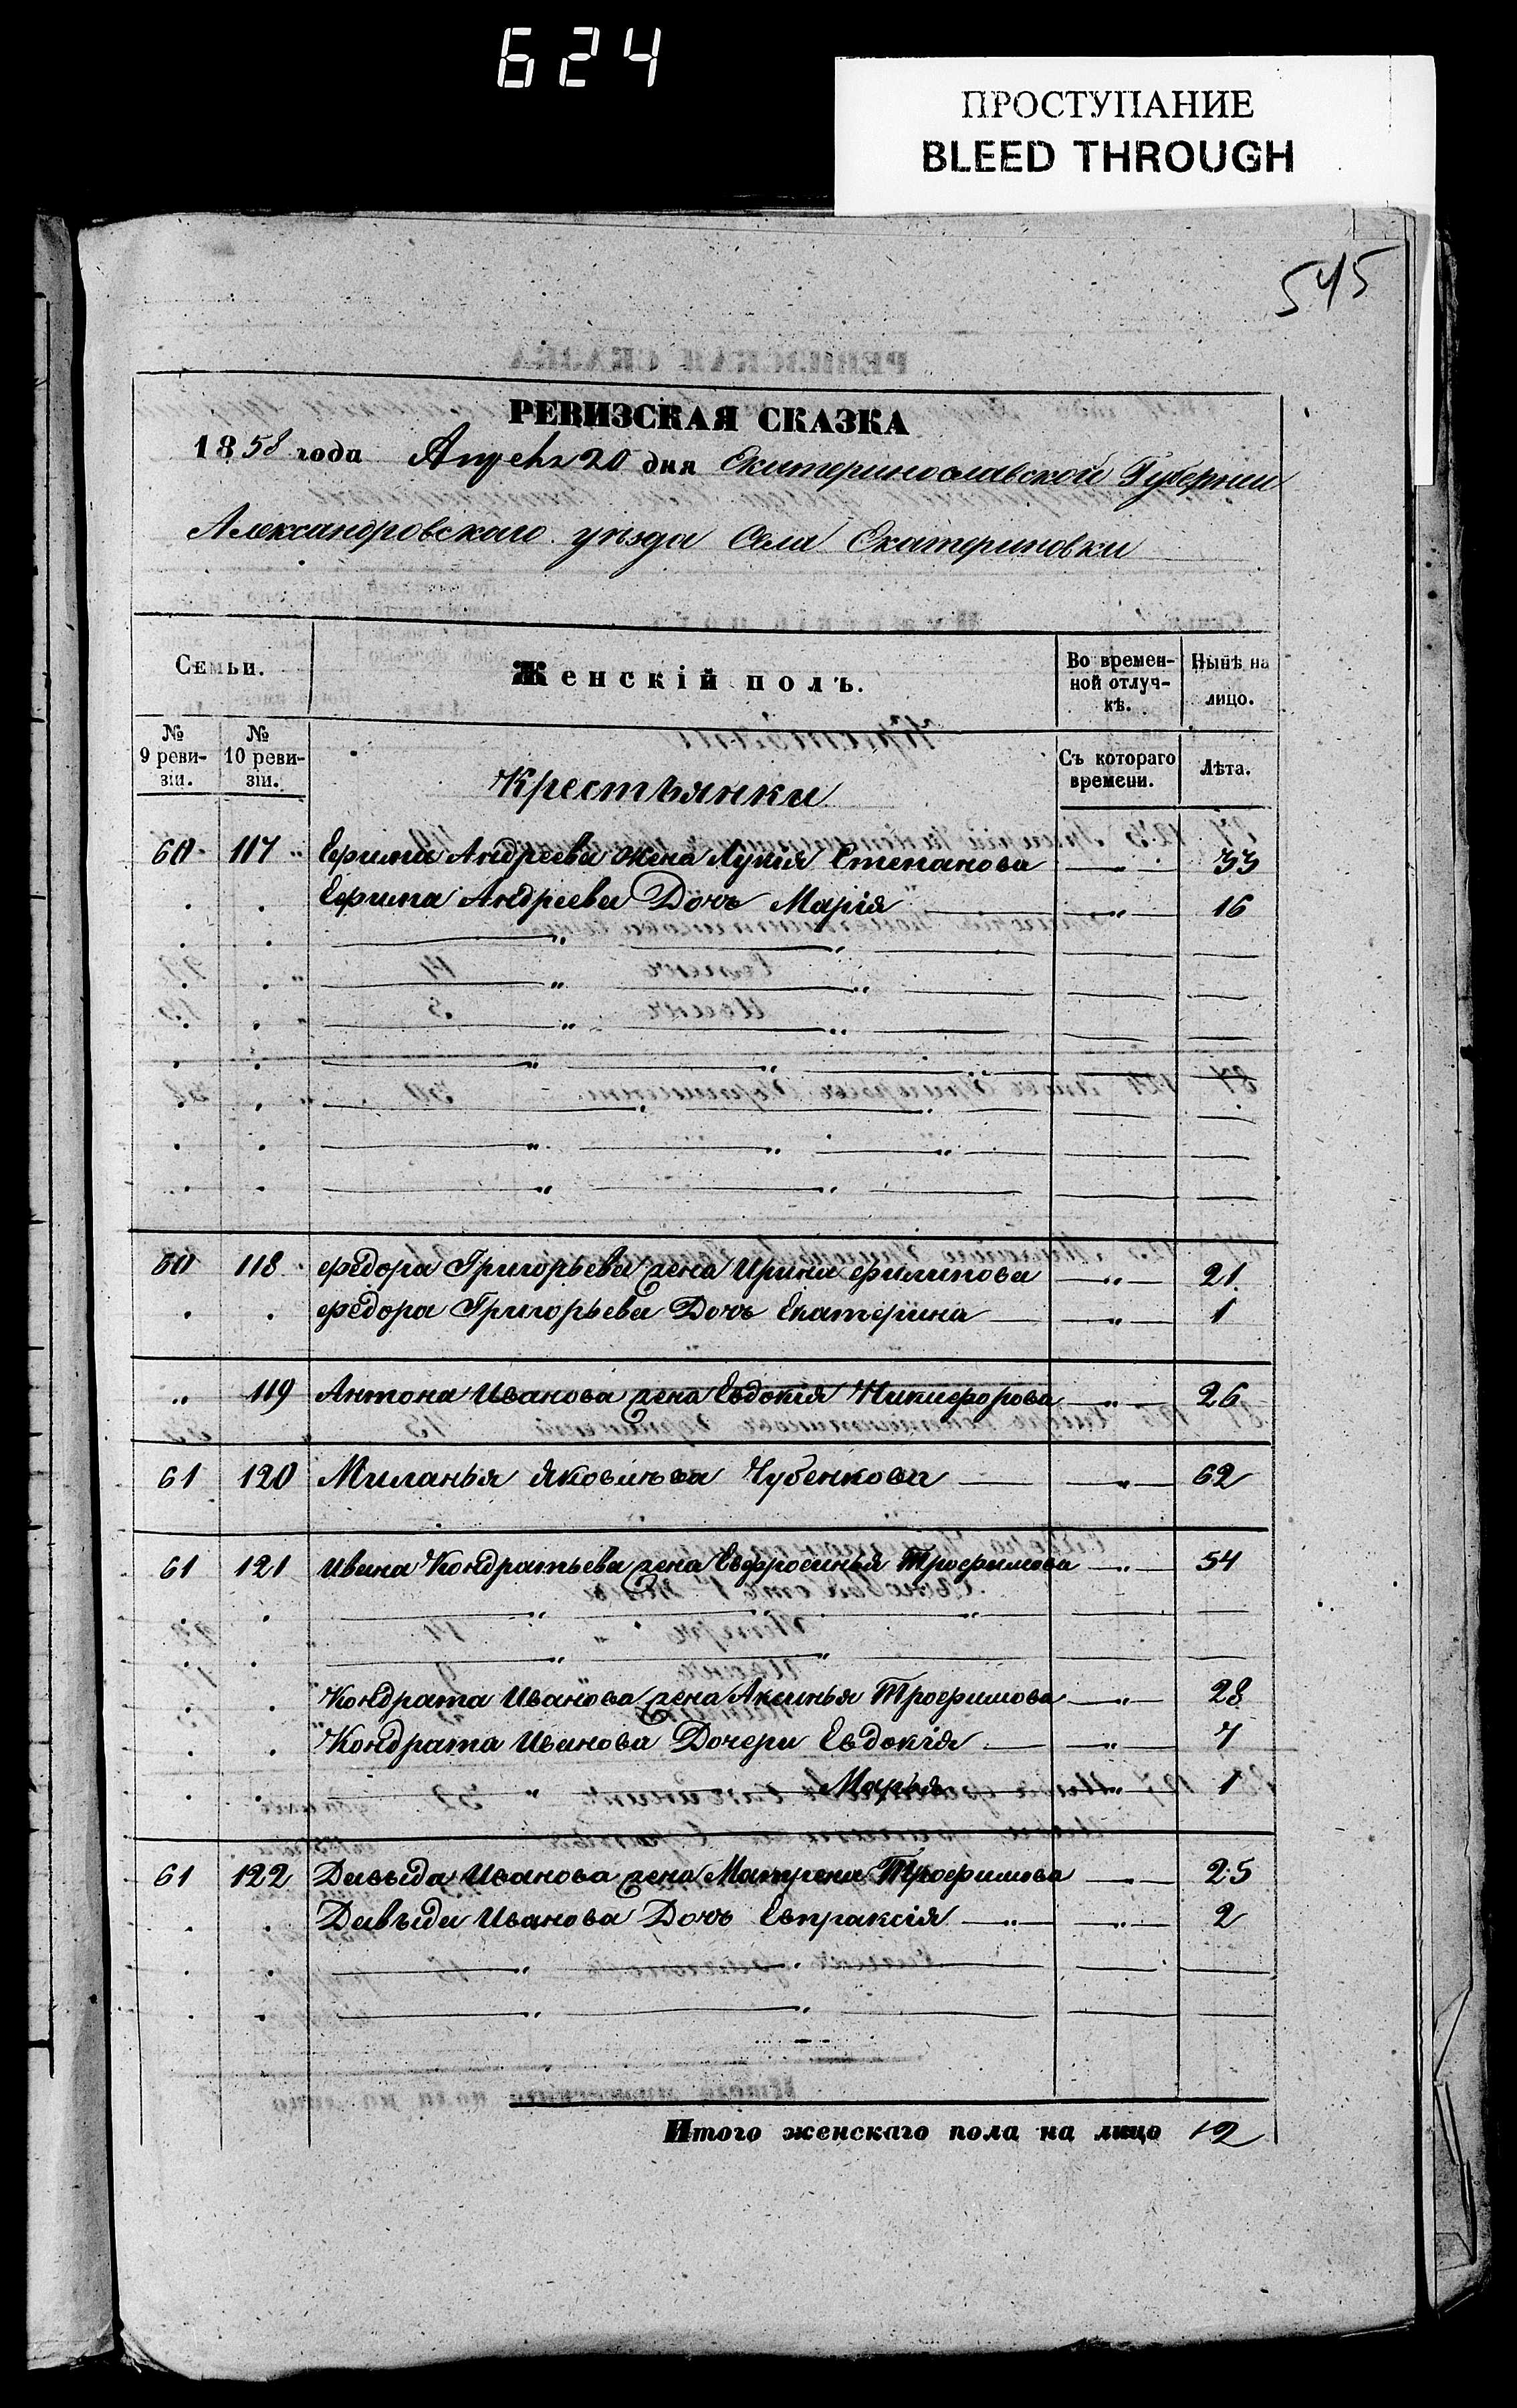 624
ПРОСТУПАНИЕ
BLEED THROUGH
545
РЕВИЗСКАЯ СКАЗКА
1858 года Апреля 20 дня Екатеринославской Губернии
Александровскаго уѣзда Села Екатериновки
Семьи. Женскій полъ. Во времен-ной отлуч-кѣ. Нынѣ на лицо.
№ 9 реви-зіи. № 10 реви-зіи. Съ котораго времени. Лѣта.
Крестьянки
60 117 Ефима Андреева жена Лукия Степанова — „ — 33
Ефима Андреева Дочь Марія — „ — 16
60 118 Федора Григорьева жена Ирина Филипова — „ — 21
Федора Григорьева Дочь Екатерина — „ — 1
„ 119 Антона Иванова жена Евдокія Никифорова — „ — 26
61 120 Миланья Яковлѣва Чубенкова — „ — 62
61 121 Ивана Кондратьева жена Евфросинья Трофимова — „ — 54
Кондрата Иванова жена Аксинья Трофимова — „ — 28
Кондрата Иванова Дочери Евдокія — „ — 7
Марья — „ — 1
61 122 Давыда Иванова жена Матрена Трофимова — „ — 25
Давыда Иванова Дочь Евпраксія — „ — 2
Итого женскаго пола на лицо 12